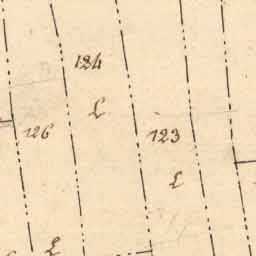 124
L
126
123
L
L